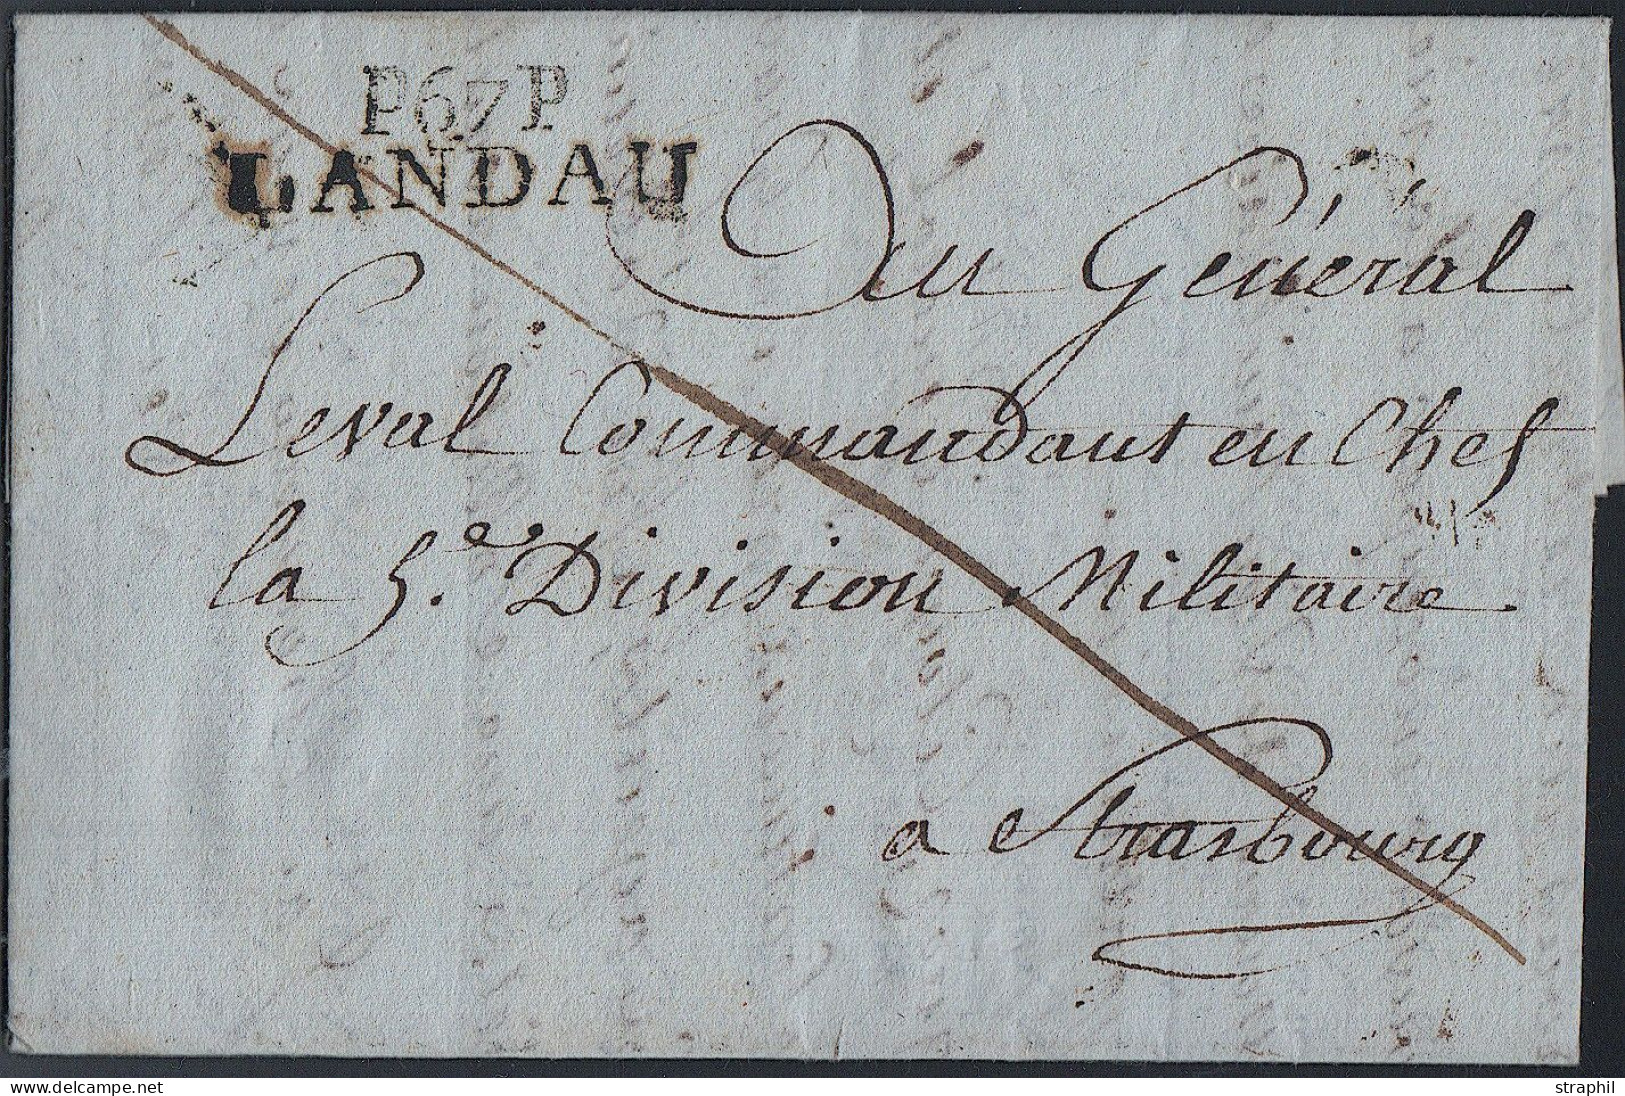 P67P
LANDAU
Au Général
Leval Commandant en Chef
la 5.e Division Militaire
a Strasbourg
delcampe.net
straphil